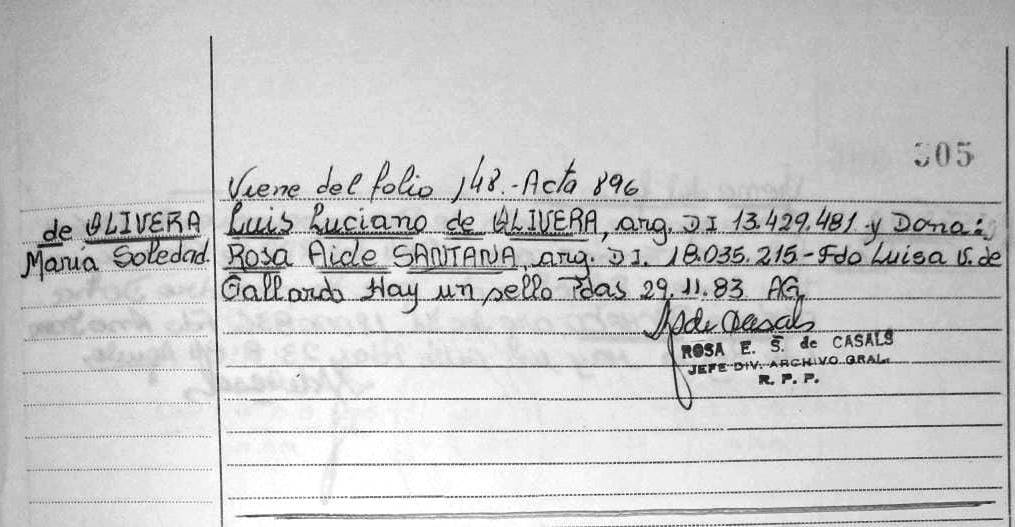 305
Viene del folio 148.-Acta 896
de OLIVERA
Maria Soledad.
Luis Luciano de OLIVERA, arg. DI 13.429.481 y Dona:
Rosa Aide SANTANA, arg. DI. 18.035.215-Fdo Luisa V. de
Gallardo Hay un sello Pdas 29.11.83 AG
de Casals
ROSA E. S. de CASALS
JEFE DIV. ARCHIVO GRAL.
R. P. P.